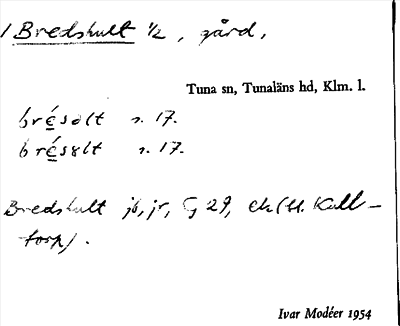 1 Bredshult 1/2, gård,
Tuna sn, Tunaläns hd, Klm. l.
brésolt s. 17.
brésult s. 17.
Bredshult jb, jr, G 29, ek (St. Kull-
torp).
Ivar Modéer 1954